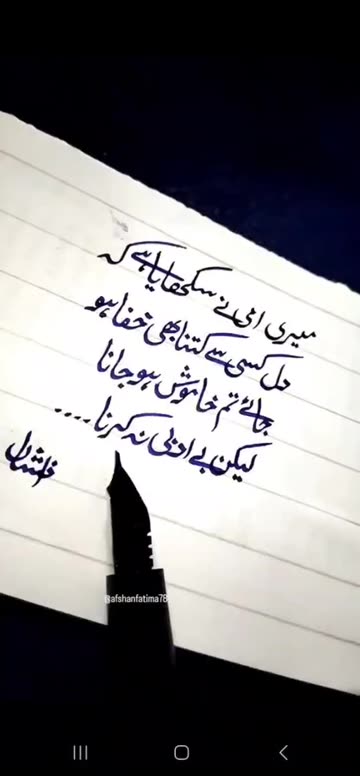 میری امی نے سکھایا ہے کہ
دل کسی سے کتنا بھی خفا ہو
جائے تم خاموش ہو جانا
لیکن بے ادبی نہ کرنا....
@afshanfatima78